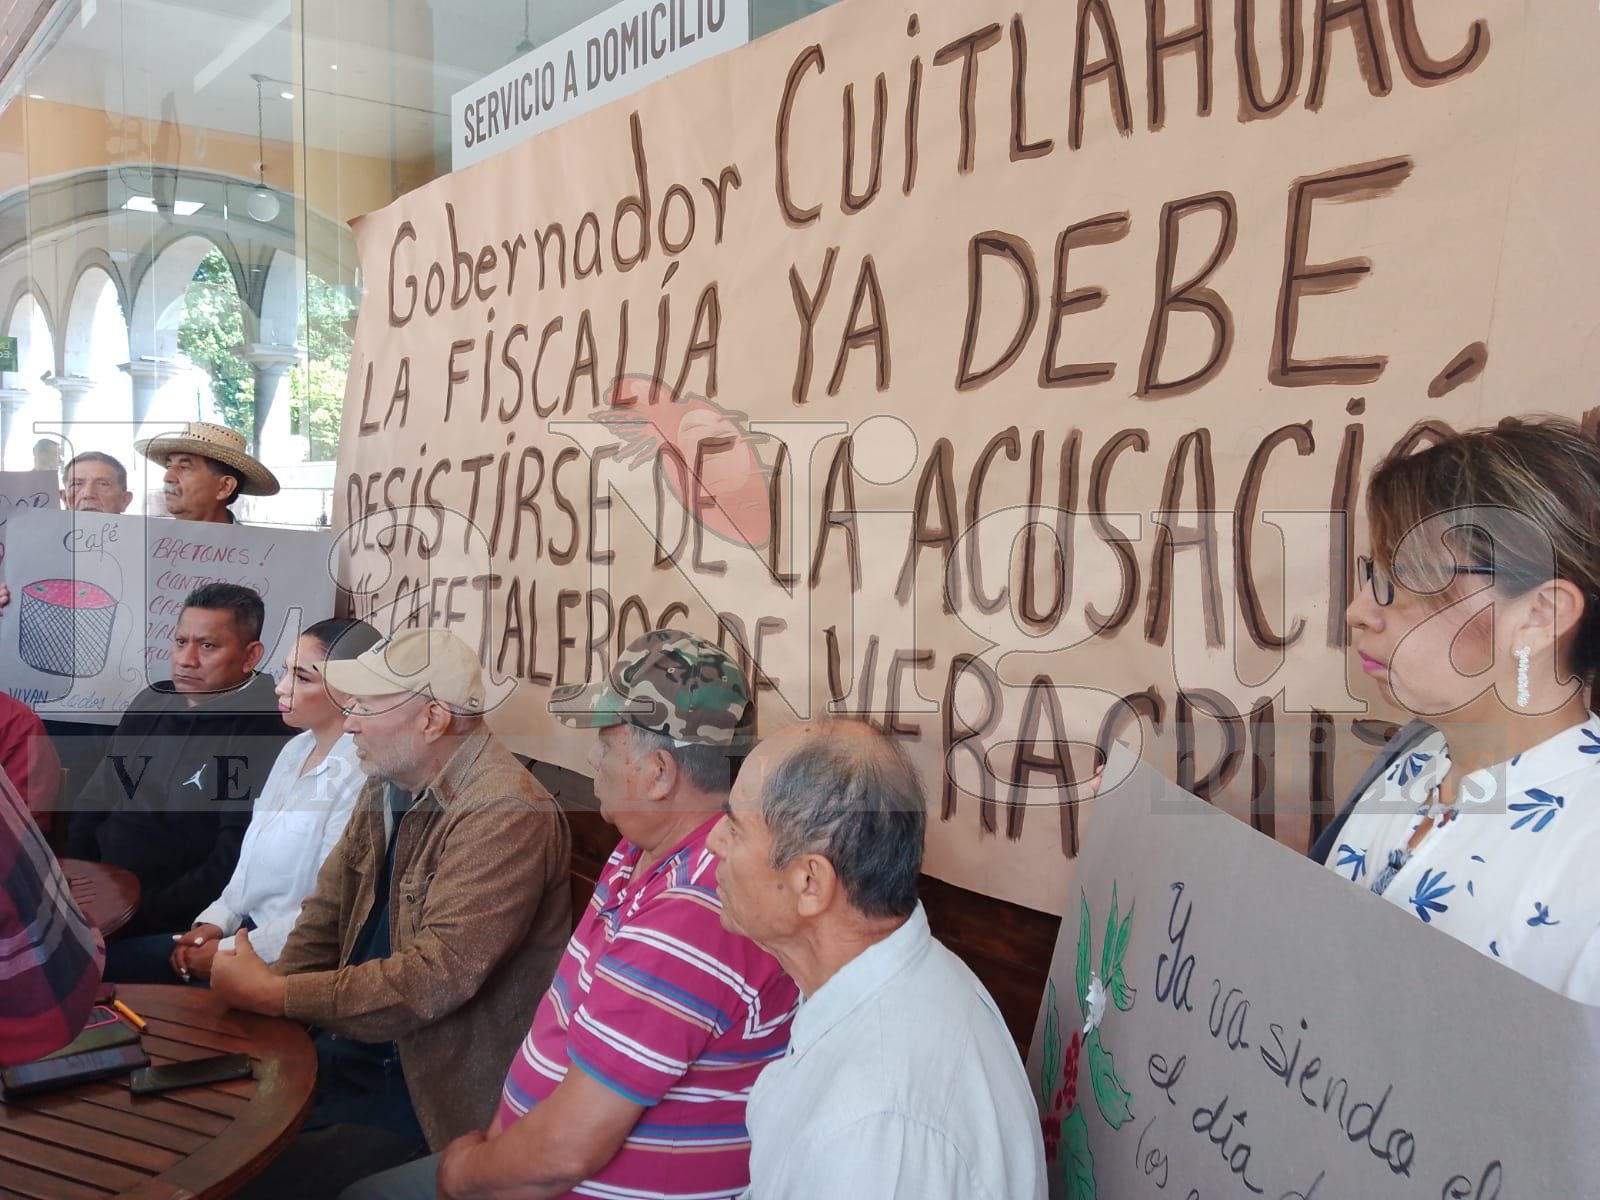 SERVICIO A DOMICILIO
Gobernador CUITLAHUAC
LA FISCALÍA YA DEBE
DESISTIRSE DE LA ACUSACIÓ
CAFETALEROS DE VERACRUZ
Café
BRETONES!
VIVAN todos
Ya va siendo el
el día d
los
La Nigua
VERACRUZ
noticias